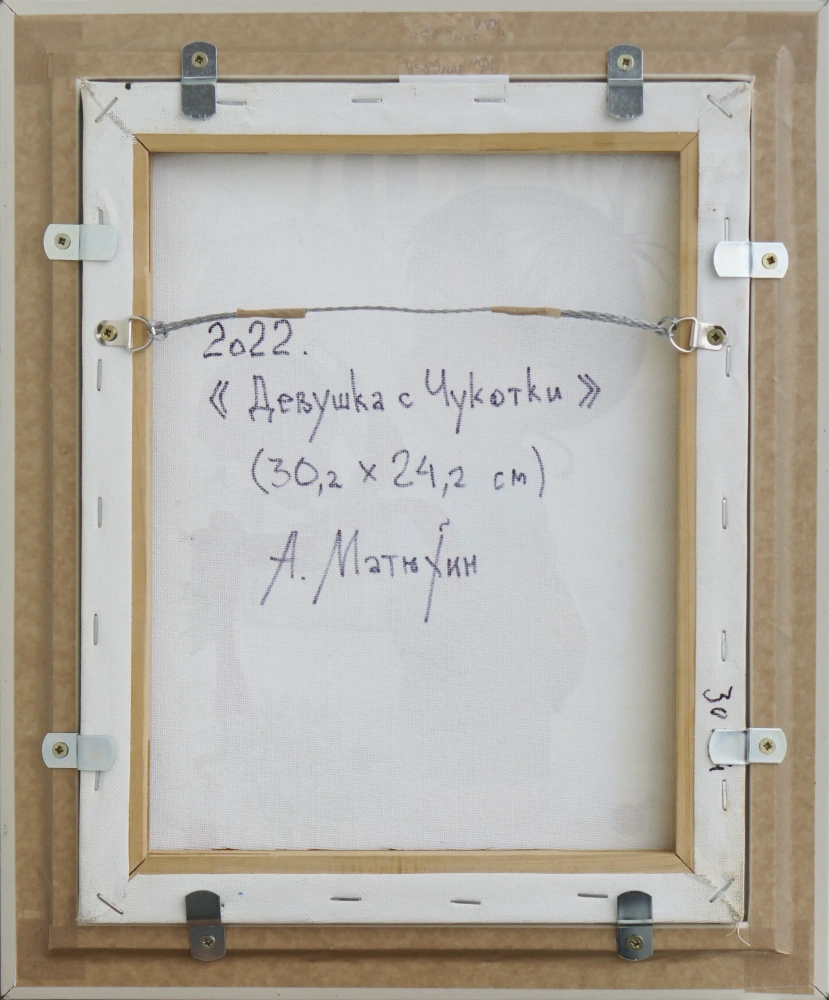 2022.
« Девушка с Чукотки »
(30,2 x 24,2 см)
А. Матюхин
30